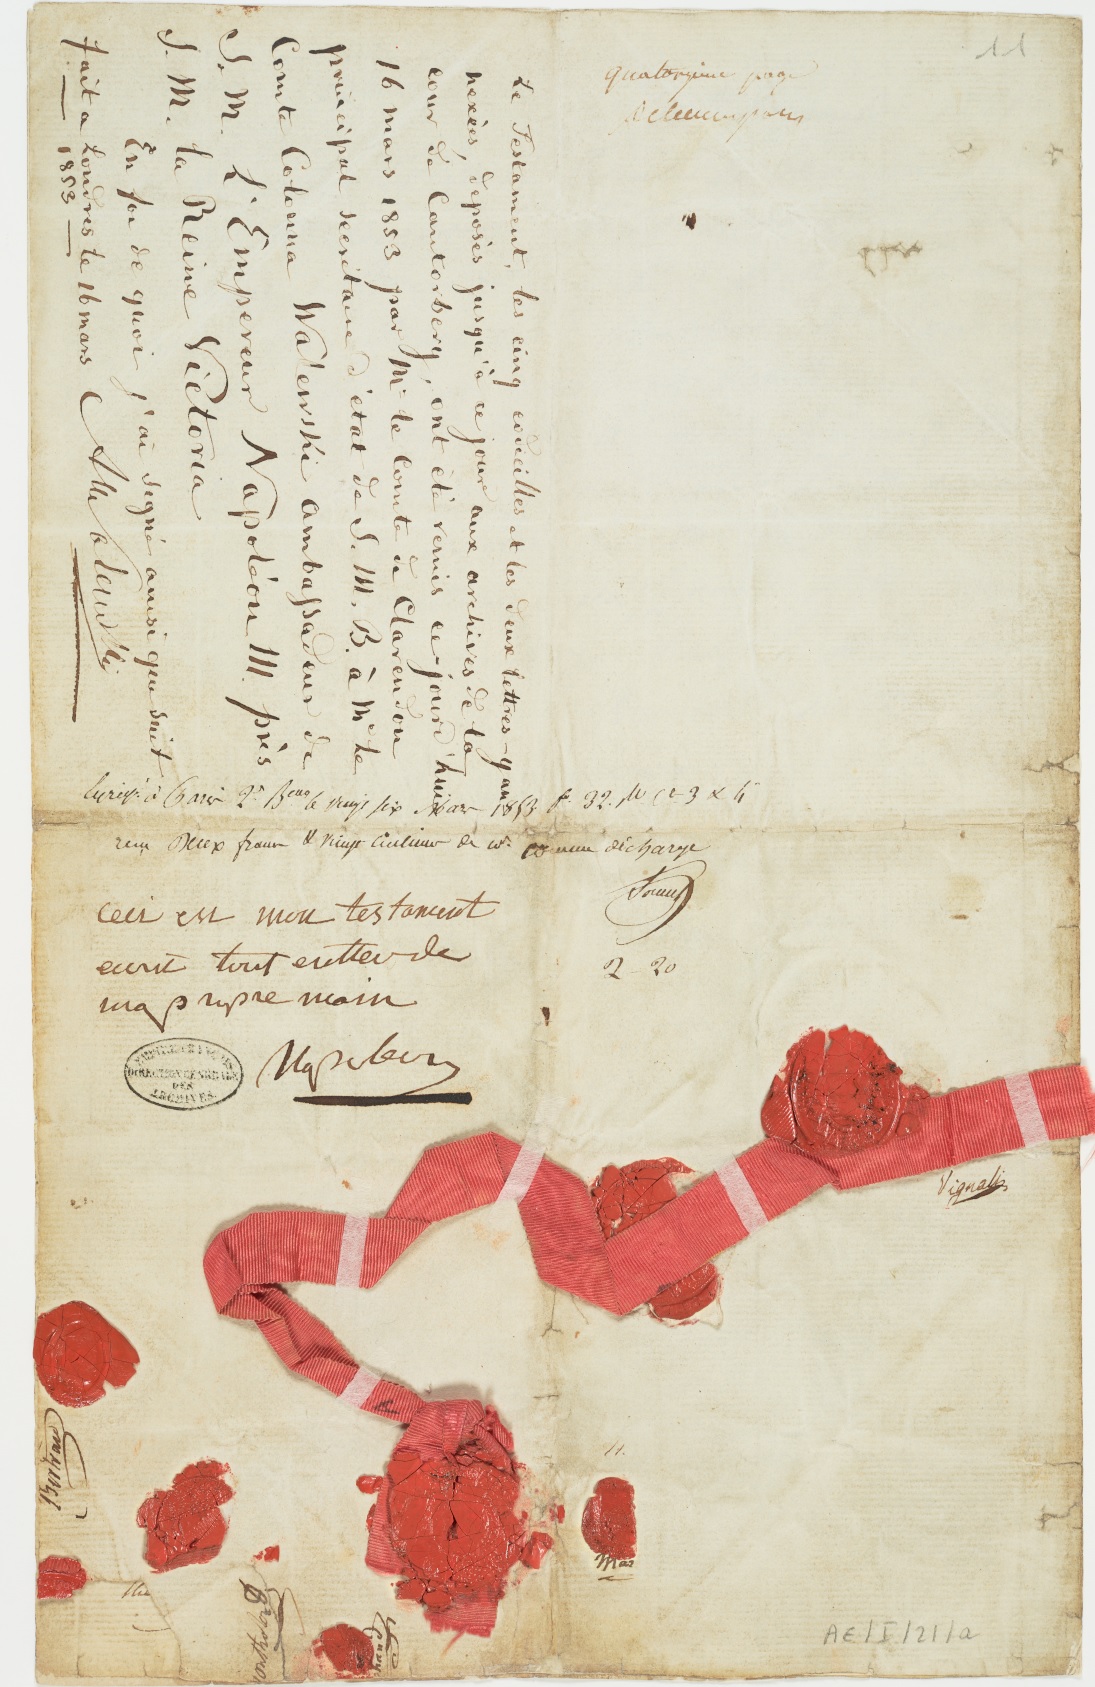 11
quatorzième page
Le Testament, les cinq codicilles et les deux lettres-y an
nexées, déposés jusqu'à ce jour aux archives de la
cour de Cantorbery, ont été remis ce jourd'hui
16 mars 1853 par Mr le Comte de Clarendon
principal secrétaire d'état de S. M. B. à Mr le
Comte Colonna Walewski ambassadeur de
S. M. L'Empereur Napoléon III. près
S. M. la Reine Victoria
En foi de quoi j'ai signé ainsi que suit
fait à Londres le 16 mars
— 1853 —
A Walewski
à Paris 2e Beau le vingt six Mars 1853 f. 32.
reçu deux francs vingt centimes de décharge
2-20
ceci est mon testament
ecrit tout entier de
ma propre main
Napoleon
DIRECTION GENERALE
DES
ARCHIVES.
Vignali
11.
Mar
AE/I/21/a